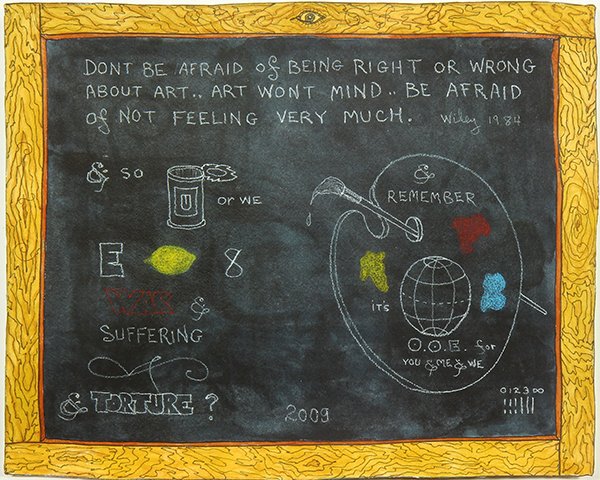 DONT BE AFRAID of BEING RIGHT OR WRONG
ABOUT ART.. ART WONT MIND.. BE AFRAID
of NOT FEELING VERY MUCH. Wiley 1984
& SO U OR WE
E 8
&
SUFFERING
& TORTURE ?
2009
&
REMEMBER
IT'S
O.O.E. for
YOU & ME & WE
012300